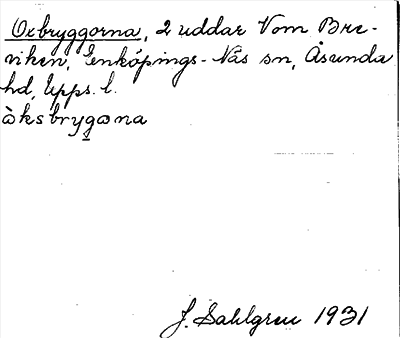 Oxbryggorna, 2 uddar V om Bre-
viken, Enköpings-Näs sn, Åsunda
hd, Upps. l.
òksbryg̲ɷna
J. Sahlgren 1931